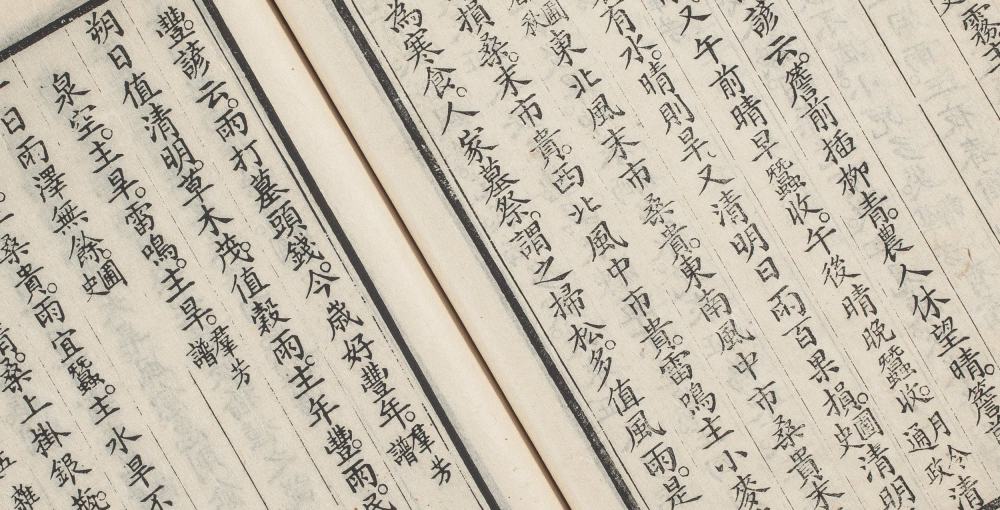 霧主
諺云。簷前插柳青。農人休望晴。簷
又午前晴早蠶收。午後晴晚蠶收。月令通政清
有水。晴則旱、又清明日雨百果損。圖史清明
春秋圖東北風末市桑貴。東南風中市桑貴末
損桑。末市貴。西北風中市貴。雷鳴主小麥
為寒食。人家墓祭。謂之掃松。多值風雨。是
豐。諺云。雨打墓頭錢。今歲好豐年。羣芳譜
朔日值清明。草木茂。值穀雨。主年豐。雨。
泉空。主旱。雷鳴。主旱。羣芳譜
日雨澤無餘。圖史
桑貴。雨宜蠶。主水旱不
桑上掛銀瓶。雜五